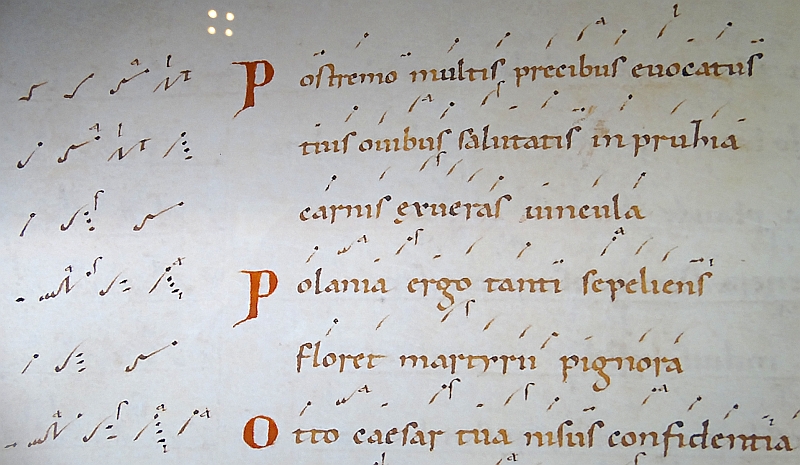 Postremo multis precibus euocatus
tuis ouibus salutatis in pruhia
carnis exueras uincula
Polania ergo tanti sepeliens
floret martyrii pignora
Otto caesar tua nisus confidentia